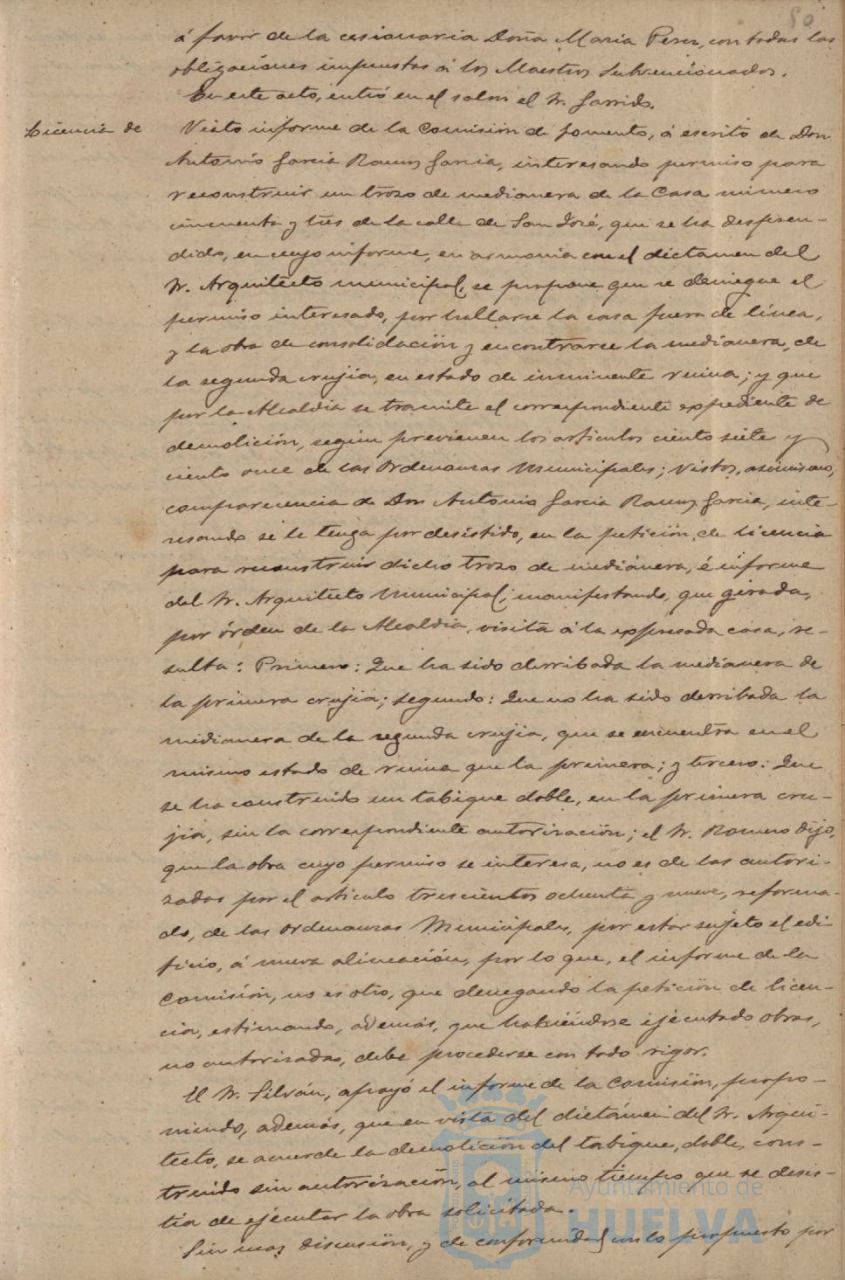 50
á favor de la cesionaria Doña Maria Perez, con todas las
obligaciones impuestas á los Maestros Subvencionados.
En este acto, entró en el salon el Sr. Garrido.
Licencia de
Visto informe de la Comisión de Fomento, á escrito de Don
Antonio Garcia Ramos Garcia, interesando permiso para
reconstruir un trozo de medianera de la Casa número
cincuenta y tres de la calle de San José, que se ha despren-
dido, en cuyo informe, en armonia con el dictamen del
Sr. Arquitecto municipal, se propone que se deniegue el
permiso interesado, por hallarse la casa fuera de línea,
y la obra de consolidación y encontrarse la medianera, de
la segunda crujia, en estado de inminente ruina; y que
por la Alcaldia se tramite el correspondiente expediente de
demolición, según previenen los articulos ciento siete y
ciento once de las Ordenanzas Municipales; Vistos, asimismo,
comparecencia de Don Antonio Garcia Ramos Garcia, inte-
resando se le tenga por desistido, en la petición de licencia
para reconstruir dicho trozo de medianera, é informe
del Sr. Arquitecto Municipal, manifestando, que girada,
por órden de la Alcaldia, visita á la expresada casa, re-
sulta: Primero: Que ha sido derribada la medianera de
la primera crujia; segundo: Que no ha sido derribada la
medianera de la segunda crujia, que se encuentra en el
mismo estado de ruina que la primera; y tercero: Que
se ha construido un tabique doble, en la primera cru-
jia, sin la correspondiente autorización; el Sr. Romero dijo,
que la obra cuyo permiso se interesa, no es de las autori-
zadas por el articulo trescientos ochenta y nueve, reforma-
do, de las Ordenanzas Municipales, por estar sujeto el edi-
ficio, á nueva alineación, por lo que, el informe de la
Comisión, no es otro, que denegando la petición de licen-
cia, estimando, además, que habiéndose ejecutado obras,
no autorizadas, debe procederse con todo rigor.
El Sr. Silván, apoyó el informe de la Comisión, propo-
niendo, además, que en vista del dictámen del Sr. Arqui-
tecto, se acuerde la demolición del tabique, doble, cons-
truido sin autorización, al mismo tiempo que se desis-
tia de ejecutar la obra solicitada.
Sin mas discusión, y de conformidad con lo propuesto por
Ayuntamiento de
HUELVA